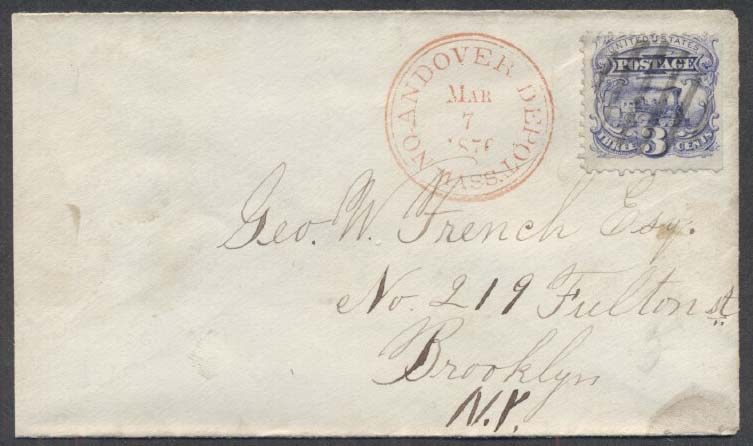 NO. ANDOVER DEPOT. MASS.
MAR
7
UNITED STATES
POSTAGE
THREE 3 CENTS
Geo. W. French Esq.
No. 219 Fulton st
Brooklyn
N.Y.